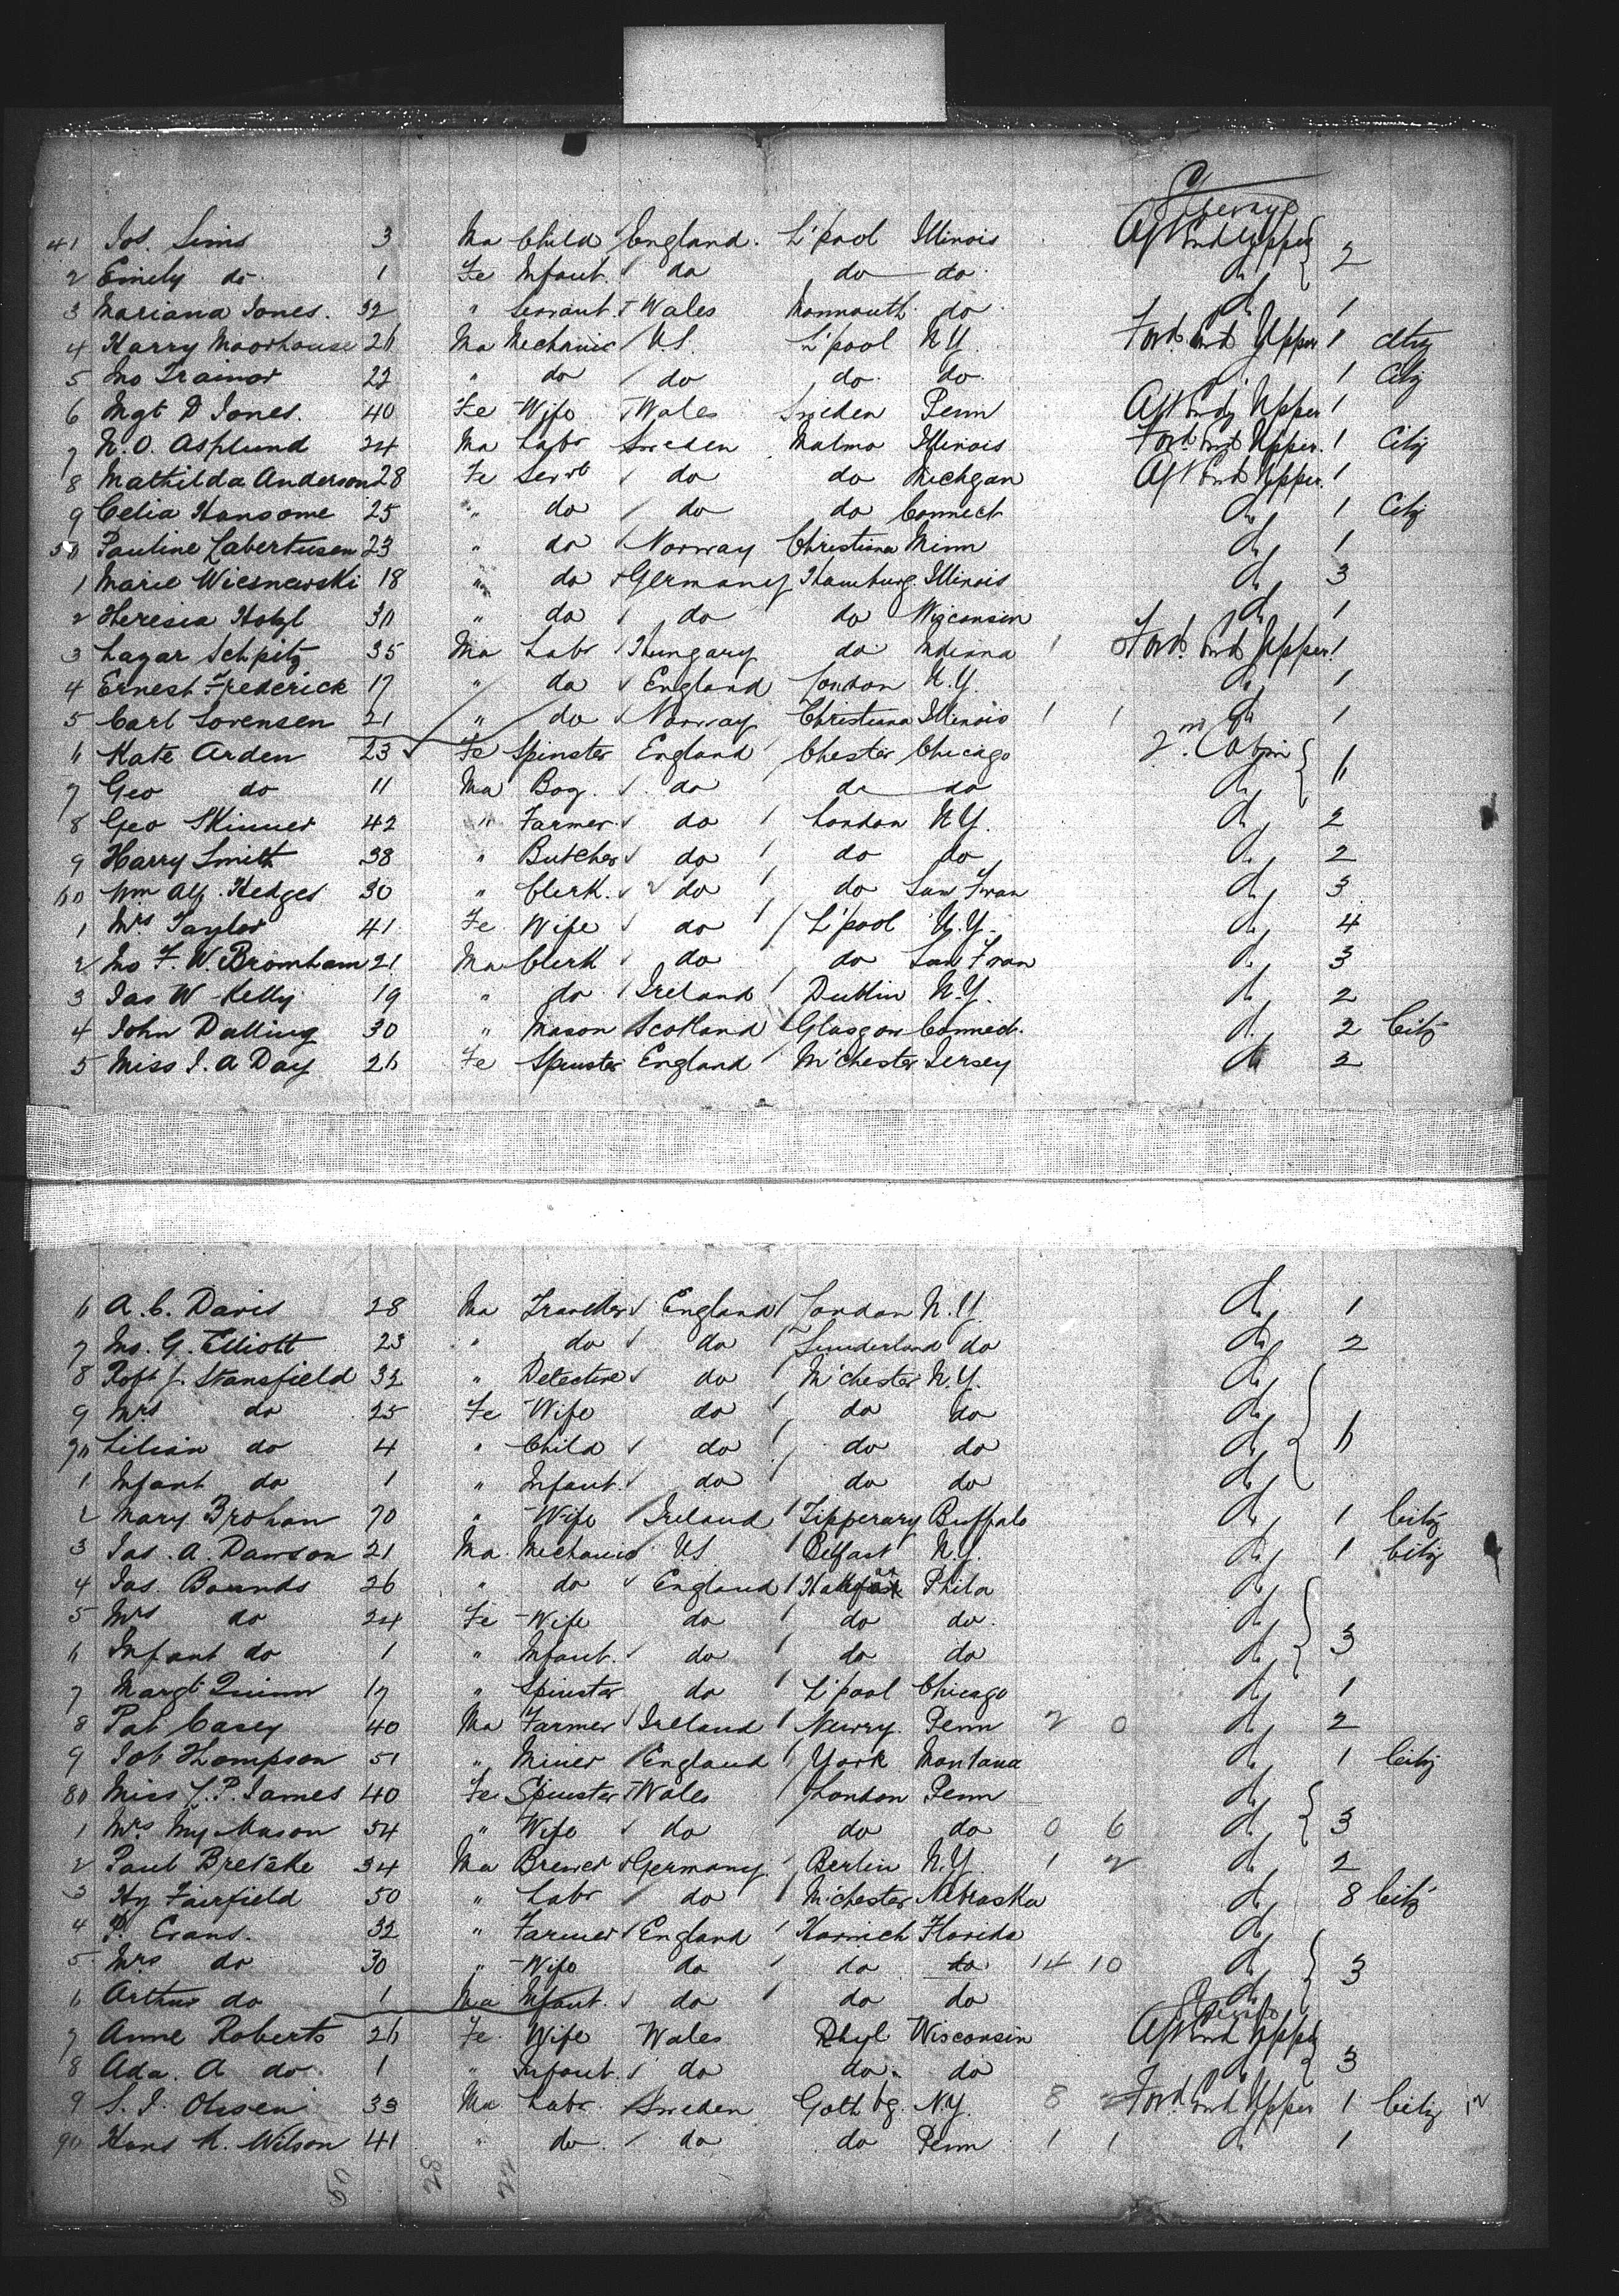 Steerage
41 Jos. Sims 3 Ma Child England. L'pool Illinois Aft End Upper 2
2 Emily do 1 Fe Infant. do do do do
3 Mariana Jones. 32 " Servant. Wales Monmouth do do 1
4 Harry Moorhouse 26 Ma Mechanic U.S. L'pool N.Y. Ford. End Upper 1 Citz
5 Jno Trainor 22 " do do do do do 1 Citz
6 Mgt D Jones. 40 Fe Wife Wales Sweden Penn Aft End Upper 1
7 N. O. Asplund 24 Ma Labr Sweden Malmo Illinois Ford. End Upper. 1 Citz
8 Mathilda Anderson 28 Fe Servt do do Michgan Aft End Upper. 1
9 Celia Hansome 25 " do do do Connect do 1 Citz
50 Pauline Labertusen 23 " do Norway Christiana Minn do 1
1 Marie Wiesnewski 18 " do Germany Hamburg Illinois do 3
2 Heresia Hotzl 30 " do do do Wisconsin do 1
3 Lazar Schpitz 35 Ma Labr Hungary do Indiana 1 Ford. End Upper. 1
4 Ernest Frederick 17 " do England London N.Y. do 1
5 Carl Sorensen 21 " do Norway Christiana Illinois 1 1 do 1
6 Kate Arden 23 Fe Spinster England Chester Chicago 2nd Cabin 6
7 Geo do 11 Ma Boy. do do do do
8 Geo Skinner 42 " Farmer do London N.Y. do 2
9 Harry Smith 38 " Butcher do do do do 2
60 Wm Alf. Hedges 30 " Clerk. do do San Fran do 3
1 Mrs Taylor 41 Fe Wife do L'pool N.Y. do 4
2 Jno F. W. Bromham 21 Ma Clerk do do San Fran do 3
3 Jas W Kelly 19 " do Ireland Dublin N.Y. do 2
4 John Dalling 30 " Mason Scotland Glasgow Connect. do 2 Citz
5 Miss J. A Day 26 Fe Spinster England M'chester Jersey do 2
6 A. C. Davis 28 Ma Traveller England London N.Y. do 1
7 Jno. G. Elliott 23 " do do Sunderland do do 2
8 Robt J. Stansfield 32 " Detective do M'chester N.Y. do
9 Mrs do 25 Fe Wife do do do do 6
70 Lilian do 4 " Child do do do do
1 Infant do 1 " Infant. do do do do
2 Mary Brohan 70 " Wife Ireland Tipperary Buffalo do 1 Citz
3 Jas. A. Dawson 21 Ma. Mechanic US Belfast N.Y. do 1 Citz
4 Jas. Bounds 26 " do England Halifax Phila do
5 Mrs do 24 Fe Wife do do do. do 3
6 Infant do 1 " Infant. do do do do
7 Margt Quinn 17 " Spinster do L'pool Chicago do 1
8 Pat Casey 40 Ma Farmer Ireland Newry. Penn 2 0 do 2
9 Job Thompson 51 " Miner England York Montana do 1 Citz
80 Miss J. P. James 40 Fe Spinster Wales London Penn do
1 Mrs. My Mason 54 " Wife do do do 0 6 do 3
2 Paul Bretske 34 Ma Brewer Germany. Berlin N.Y. 1 2 do 2
3 Hy Fairfield 50 " Labr do M'chester Nebraska do 8 Citz
4 P. Evans. 32 " Farmer England Harwich Florida do
5 Mrs do 30 " Wife do do do 14 10 do 3
6 Arthur do 1 Ma Infant. do do do do
Steerage
7 Anne Roberts 26 Fe. Wife Wales Rhyl Wisconsin Aft End Upper
8 Ada. A do 1 " Infant. do do. do do 3
9 S. J. Olsen 33 Ma Labr. Sweden Gothbg. N.Y. 8 Ford. End Upper 1 Citz
90 Hans M. Wilson 41 " do. do do Penn 1 1 do 1
50 28 22